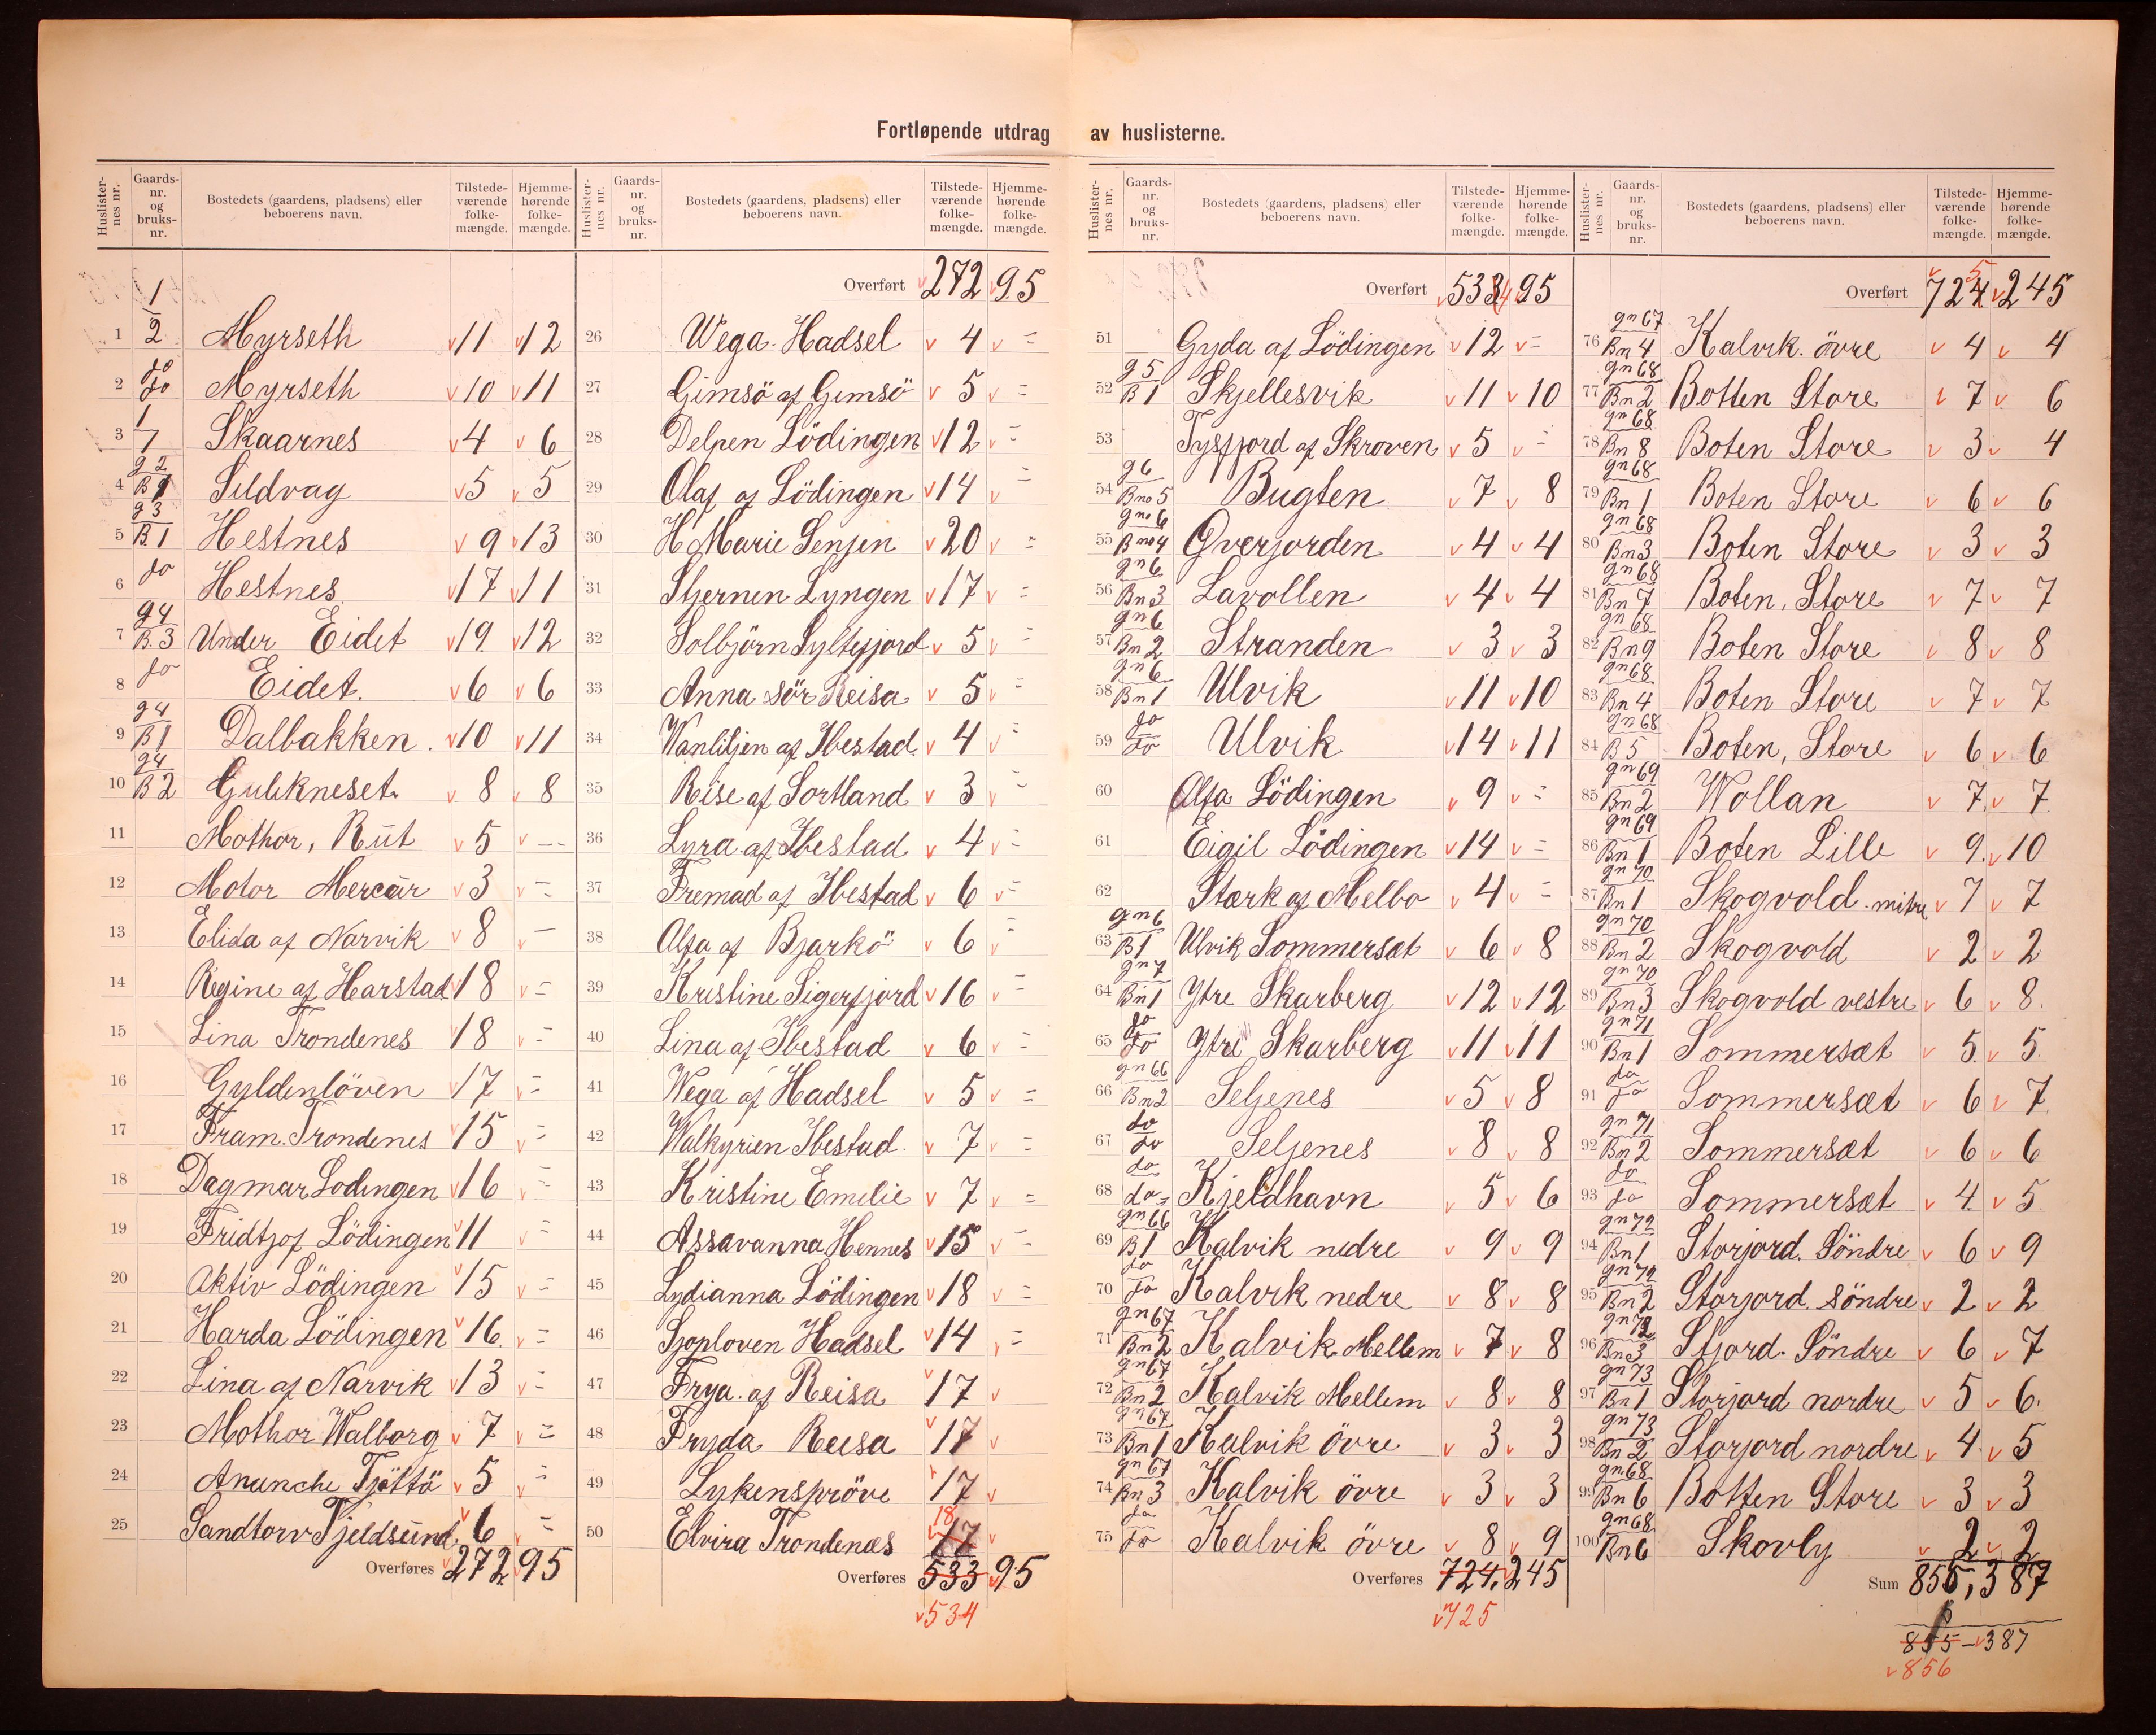 Fortløpende utdrag av huslisterne.
Huslisternes nr. Gaards-nr. og bruks-nr. Bostedets (gaardens, pladsens) eller beboerens navn. Tilstedeværende folkemængde. Hjemmehørende folkemængde.
1 1/2 Myrseth 11 12
2 do do Myrseth 10 11
3 1/7 Skaarnes 4 6
4 g 2 B 1 Sildvag 5 5
5 g 3 B. 1 Hestnes 9 13
6 do Hestnes 17 11
7 g4 B. 3 Under Eidet 19. 12
8 do Eidet. 6 6
9 g4 B1 Dalbakken. 10 11
10 g4 B2 Gulkneset. 8 8
11 Mothor, Rut 5 --
12 Motor Mercur 3 =
13 Elida af Narvik 8 -
14 Regine af Harstad 18 =
15 Lina Trondenes 18 =
16 Gyldenlöven 17 =
17 Fram. Trondenes 15 =
18 Dagmar Lodingen 16 =
19 Fridtjof Lödingen 11 =
20 Aktiv Lödingen 15 =
21 Harda Lödingen 16. =
22 Lina af Narvik 13 =
23 Mothor Walborg 7 =
24 Ananche Tjöttö 5 =
25 Sandtorv Tjeldsund 6 =
Overføres 272. 95
Huslisternes nr. Gaards-nr. og bruks-nr. Bostedets (gaardens, pladsens) eller beboerens navn. Tilstedeværende folkemængde. Hjemmehørende folkemængde.
Overført 272 95
26 Wega. Hadsel 4 =
27 Gimsö af Gimsö 5 =
28 Delpen Lödingen 12 =
29 Olaf af Lödingen 14 =
30 H Marie Senjen 20 =
31 Stjernen Lyngen 17 =
32 Solbjörn Syltefjord 5 =
33 Anna sör Reisa 5 =
34 Vanliljen af Ibestad. 4 =
35 Reise af Sortland 3 =
36 Lyra af Ibestad 4 =
37 Fremad af Ibestad 6 =
38 Alfa af Bjarkö 6 =
39 Kristine Sigerfjord 16 =
40 Lina af Ibestad 6 =
41 Wega af Hadsel 5 =
42 Walkyrien Ibestad. 7 =
43 Kristine Emelie 7 =
44 Assavanna Hennes 15 =
45 Lydianna Lödingen 18 =
46 Sjoploven Hadsel 14 =
47 Frya. af Reisa 17
48 Fryda Reisa 17
49 Lykenspröve 17
50 Elvira Trondenæs 17 18
Overføres 533 95
534
Huslisternes nr. Gaards-nr. og bruks-nr. Bostedets (gaardens, pladsens) eller beboerens navn. Tilstedeværende folkemængde. Hjemmehørende folkemængde.
Overført 533 4 95
51 Gyda af Lödingen 12 =
52 g 5 B 1 Skjellesvik 11 10
53 Tysfjord af Skroven 5 =
54 g6 Bno 5 Bugten 7 8
55 gno 6 Bno 4 Överjorden 4 4
56 gn 6 Bn 3 Lavollen 4 4
57 gn 6 Bn 2 Stranden 3 3
58 gn 6 Bn 1 Ulvik 11 10
59 do do Ulvik 14 11
60 Alfa Lödingen 9 =
61 Eigil Lödingen 14 =
62 Stærk af Melbo 4 =
63 gn 6 B1 Ulvik Sommersæt 6 8
64 gn 7 Bn 1 Ytre Skarberg 12 12
65 do do Ytre Skarberg 11 11
66 gn 66 Bn 2 Seljenes 5 8
67 do do Seljenes 8 8
68 do do Kjeldhavn 5 6
69 gn 66 B 1 Kalvik nedre 9 9
70 do do Kalvik nedre 8 8
71 gn 67 Bn 2 Kalvik Mellem 7 8
72 gn 67 Bn 2 Kalvik Mellem 8 8
73 gn 67 Bn 1 Kalvik övre 3 3
74 gn 67 Bn 3 Kalvik övre 3 3
75 do do Kalvik övre 8 9
Overføres 724. 245
725
Huslisternes nr. Gaards-nr. og bruks-nr. Bostedets (gaardens, pladsens) eller beboerens navn. Tilstedeværende folkemængde. Hjemmehørende folkemængde.
Overført 724 5 245
76 gn 67 Bn 4 Kalvik. övre 4 4
77 gn 68 Bn 2 Botten Store 7 6
78 gn 68 Bn 8 Boten Store 3 4
79 gn 68 Bn 1 Boten Store 6 6
80 gn 68 Bn 3 Boten Store 3 3
81 gn 68 Bn 7 Boten, Store 7 7
82 gn 68 Bn 9 Boten Store 8 8
83 gn 68 Bn 4 Boten Store 7 7
84 gn 68 B 5 Boten, Store 6 6
85 gn 69 Bn 2 Wollan 7 7
86 gn 69 Bn 1 Boten Lille 9. 10
87 gn 70 Bn 1 Skogvold. mitre 7 7
88 gn 70 Bn 2 Skogvold 2 2
89 gn 70 Bn 3 Skogvold vestre 6 8.
90 gn 71 Bn 1 Sommersæt 5. 5.
91 do do Sommersæt 6 7
92 gn 71 Bn 2 Sommersæt 6 6
93 do do Sommersæt 4. 5.
94 gn 72 Bn 1 Storjord. Söndre 6 9
95 gn 72 Bn 2 Storjord. söndre 2 2
96 gn 72 Bn 3 Stjord. Söndre 6 7
97 gn 73 Bn 1 Storjord nordre 5 6.
98 gn 73 Bn 2 Storjord nordre 4. 5
99 gn 68 Bn 6 Botten Store 3 3
100 gn 68 Bn 6 Skovly 2 2
Sum 855, 387
855 - 387
856